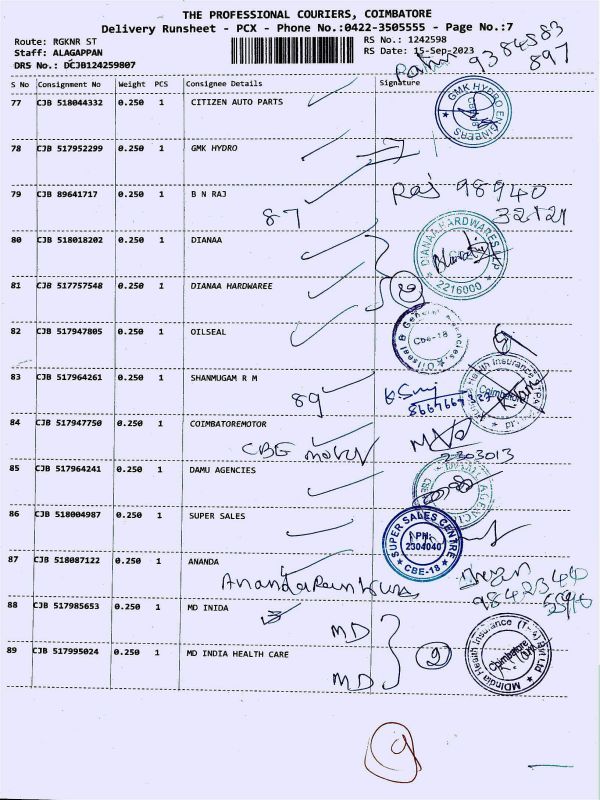 THE PROFESSIONAL COURIERS, COIMBATORE
Delivery Runsheet - PCX - Phone No.:0422-3505555 - Page No.:7
Route: RGKNR ST
RS No.: 1242598
Staff: ALAGAPPAN
RS Date: 15-Sep-2023
DRS No.: DCJB124259807
9384583
897
S No Consignment No Weight PCS Consignee Details Signature
77 CJB 518044332 0.250 1 CITIZEN AUTO PARTS
GMK HYDRO ENGINEERS
78 CJB 517952299 0.250 1 GMK HYDRO
79 CJB 89641717 0.250 1 B N RAJ
Raj 98940
87
32121
80 CJB 518018202 0.250 1 DIANAA
DIANAA HARDWARES LLP
2216000
81 CJB 517757548 0.250 1 DIANAA HARDWAREE
82 CJB 517947805 0.250 1 OILSEAL
Oilseal & General Agencies
Cbe-18
83 CJB 517964261 0.250 1 SHANMUGAM R M
89
Health Insurance
Coimbatore
84 CJB 517947750 0.250 1 COIMBATOREMOTOR
CBE motor
2303013
85 CJB 517964241 0.250 1 DAMU AGENCIES
86 CJB 518004987 0.250 1 SUPER SALES
SUPER SALES CENTRE
PH:
2304040
CBE-18
87 CJB 518087122 0.250 1 ANANDA
9842344
88 CJB 517985653 0.250 1 MD INIDA
MD
89 CJB 517995024 0.250 1 MD INDIA HEALTH CARE
2
MD
MDIndia Health Insurance (T A) Pvt Ltd
Coimbatore
9